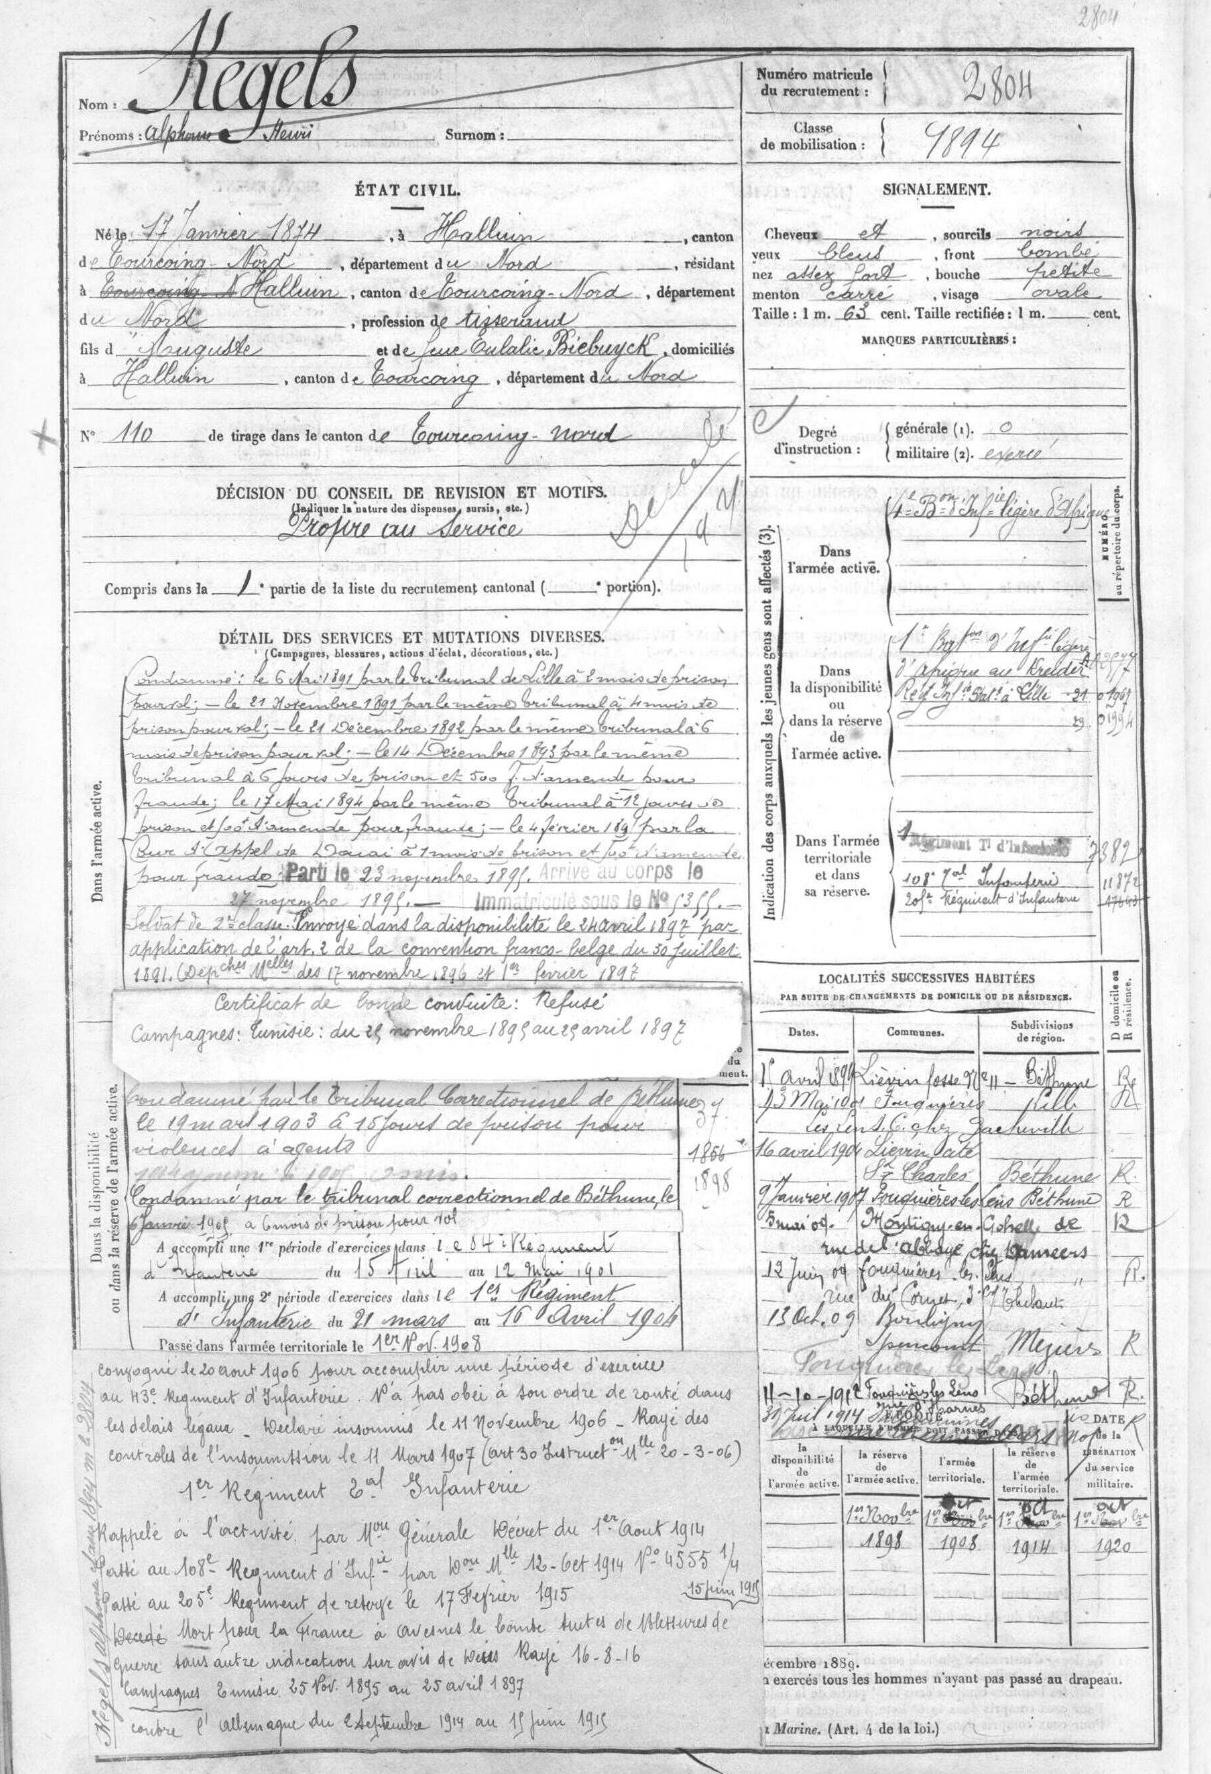 2804
Nom : Kegels
Prénoms : Alphonse Henri Surnom :
Numéro matricule du recrutement : 2804
Classe de mobilisation : 1894
ÉTAT CIVIL.
Né le 17 Janvier 1874, à Halluin, canton
de Tourcoing-Nord, département du Nord, résidant
à Tourcoing-N Halluin, canton de Tourcoing-Nord, département
du Nord, profession de tisserand
fils d'Auguste et de feue Eulalie Biebuyck, domiciliés
à Halluin, canton de Tourcoing, département du Nord
N° 110 de tirage dans le canton de Tourcoing-Nord
SIGNALEMENT.
Cheveux et, sourcils noirs
yeux bleus, front bombé
nez assez fort, bouche petite
menton carré, visage ovale
Taille : 1 m. 63 cent. Taille rectifiée : 1 m. cent.
MARQUES PARTICULIÈRES :
Degré d'instruction : générale (1). 0
militaire (2). exercé
DÉCISION DU CONSEIL DE REVISION ET MOTIFS.
(Indiquer la nature des dispenses, sursis, etc.)
Propre au service
Décédé
Compris dans la 1e partie de la liste du recrutement cantonal ( e portion).
DÉTAIL DES SERVICES ET MUTATIONS DIVERSES.
(Campagnes, blessures, actions d'éclat, décorations, etc.)
Dans l'armée active.
Condamné : le 6 Mai 1891 par le Tribunal de Lille à 2 mois de prison
pour vol ; — le 21 Novembre 1891 par le même tribunal à 4 mois de
prison pour vol ; — le 21 Décembre 1892 par le même tribunal à 6
mois de prison pour vol ; — le 14 Décembre 1893 par le même
tribunal à 6 jours de prison et 500 f. d'amende pour
fraude ; le 17 Mai 1894 par le même Tribunal à 12 jours de
prison et 500f d'amende pour fraude ; — le 4 février 189 par la
Cour d'Appel de Douai à 1 mois de prison et 500f d'amende
pour fraude. Parti le 23 novembre 1895. Arrivé au corps le
27 novembre 1895. — Immatriculé sous le No 5355. —
Soldat de 2me classe. Envoyé dans la disponibilité le 24 avril 1897 par
application de l'art. 2 de la convention franco-belge du 30 juillet
1891. (Dépches Mlles des 17 novembre 1896 et 1er février 1897
Certificat de bonne conduite : Refusé
Campagnes : Tunisie : du 25 novembre 1895 au 25 avril 1897
Dans la disponibilité ou dans la réserve de l'armée active.
Condamné par le Tribunal Correctionnel de Béthune
le 19 mars 1903 à 15 jours de prison pour
violences à agents
Condamné par le tribunal correctionnel de Béthune, le
6 Janvier 1905 à 6 mois de prison pour vol
37
1856
1898
A accompli une 1re période d'exercices dans le 84e Régiment
d'Infanterie du 15 Avril au 12 Mai 1901
A accompli une 2e période d'exercices dans le 1er Régiment
d'Infanterie du 21 mars au 16 Avril 1904
Passé dans l'armée territoriale le 1er Nov. 1908
Convoqué le 20 août 1906 pour accomplir une période d'exercice
au 43e Régiment d'Infanterie. N'a pas obéi à son ordre de route dans
les délais légaux. Déclaré insoumis le 11 Novembre 1906 – Rayé des
contrôles de l'insoumission le 11 Mars 1907 (art 30 Instructon Mlle 20-3-06)
1er Régiment Tal Infanterie
Rappelé à l'activité par Mon Générale Décret du 1er Août 1914
Passé au 108e Régiment d'Infie par Don Mlle 12-Oct 1914 No 4555 1/4
Passé au 205e Régiment de réserve le 17 Février 1915
15 juin 1915
Décédé Mort pour la France à Avesnes le Comte suites de Blessures de
Guerre sans autre indication sur avis de Décès Rayé 16-8-16
Campagnes Tunisie 25 Nov. 1895 au 25 avril 1897
contre l'Allemagne du 2 Septembre 1914 au 15 juin 1915
Kegels Alphonse classe 1894 m le 2804
Indication des corps auxquels les jeunes gens sont affectés (3).
NUMÉRO au répertoire du corps.
Dans l'armée active.
4e Bon d'Infie légère d'Afrique
Dans la disponibilité ou dans la réserve de l'armée active.
1er d'Infie légère
d'Afrique au Kreider
Lille
01967
01994
Dans l'armée territoriale et dans sa réserve.
1 Régiment Tl d'Infanterie 7382
108e Tal Infanterie 11872
205e Régiment d'Infanterie
LOCALITÉS SUCCESSIVES HABITÉES
PAR SUITE DE CHANGEMENTS DE DOMICILE OU DE RÉSIDENCE.
Dates. Communes. Subdivisions de région. D domicile ou R résidence.
1er avril 1899 Liévin fosse No 11 – Béthune R
Fouquières Lille R
Les Lens
16 avril 1904 Liévin cité
St Charles Béthune R.
9 Janvier 1907 Fouquières les Lens Béthune R
5 mai 09. Montigny-en-Gohelle R
rue de l'abbaye chez Dameers
12 Juin 09 Fouquières-les-Lens " R.
rue du Cornet
13 Oct. 09 Bouligny
Spincourt Mézières R
Fouquières les Lens
11-10-1912 Fouquières les Lens Béthune R.
31 Juil 1914
ÉPOQUE
À LAQUELLE L'HOMME DOIT PASSER DANS
DATE de la LIBÉRATION du service militaire.
la disponibilité de l'armée active. la réserve de l'armée active. l'armée territoriale. la réserve de l'armée territoriale.
1er Novbre 1898
1er Oct 1908
1er Oct 1914
1er Oct 1920
écembre 1889.
exercés tous les hommes n'ayant pas passé au drapeau.
Marine. (Art. 4 de la loi.)